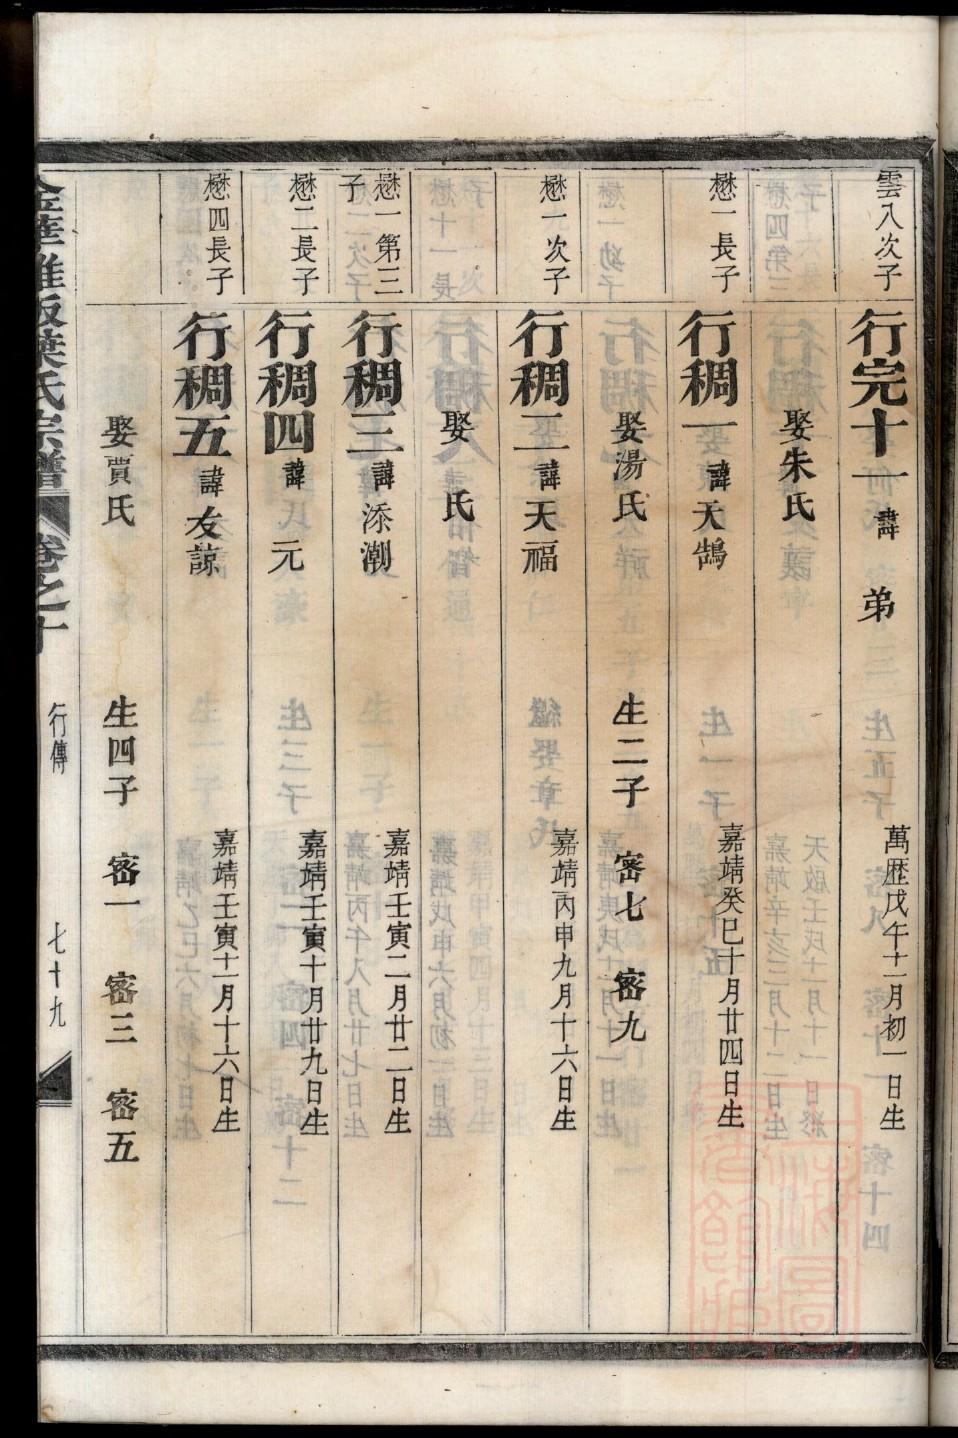 雲八次子
行完十一 諱 弟 萬歷戊午十二月初一日生
娶朱氏
懋一長子
行稠一 諱天鵠 嘉靖癸巳十月廿四日生
娶湯氏 生二子 密七 密九
懋一次子
行稠二 諱天福 嘉靖丙申九月十六日生
娶 氏
懋一第三子
行稠三 諱添潮 嘉靖壬寅二月廿二日生
懋二長子
行稠四 諱 元 嘉靖壬寅十月廿九日生
懋四長子
行稠五 諱友諒 嘉靖壬寅十一月十六日生
娶賈氏 生四子 密一 密三 密五
葉氏宗譜 卷之十 行傳 七十九